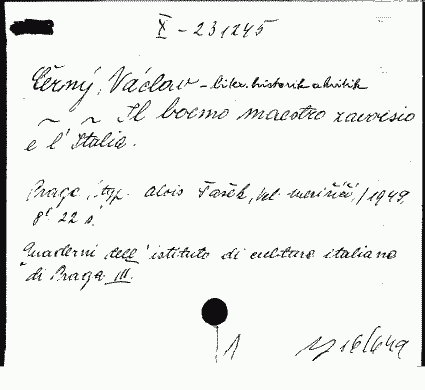 X - 231245
Černý, Václav - liter. historik a kritik
~ ~ Il boemo maestro zavvisio
e l'Italia.
Praga, typ. Alois Fašek, Vel. Meziříčí, /1949,
8° 22 s.
Quaderni dell'istituto di cultura italiana
di Praga III.
1
16/649